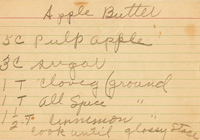 Apple Butter
5 C Pulp apple
3 C Sugar
1 T Cloves (ground
1 T All Spice "
1 1/2 T Cinnemon "
Cook until glossy